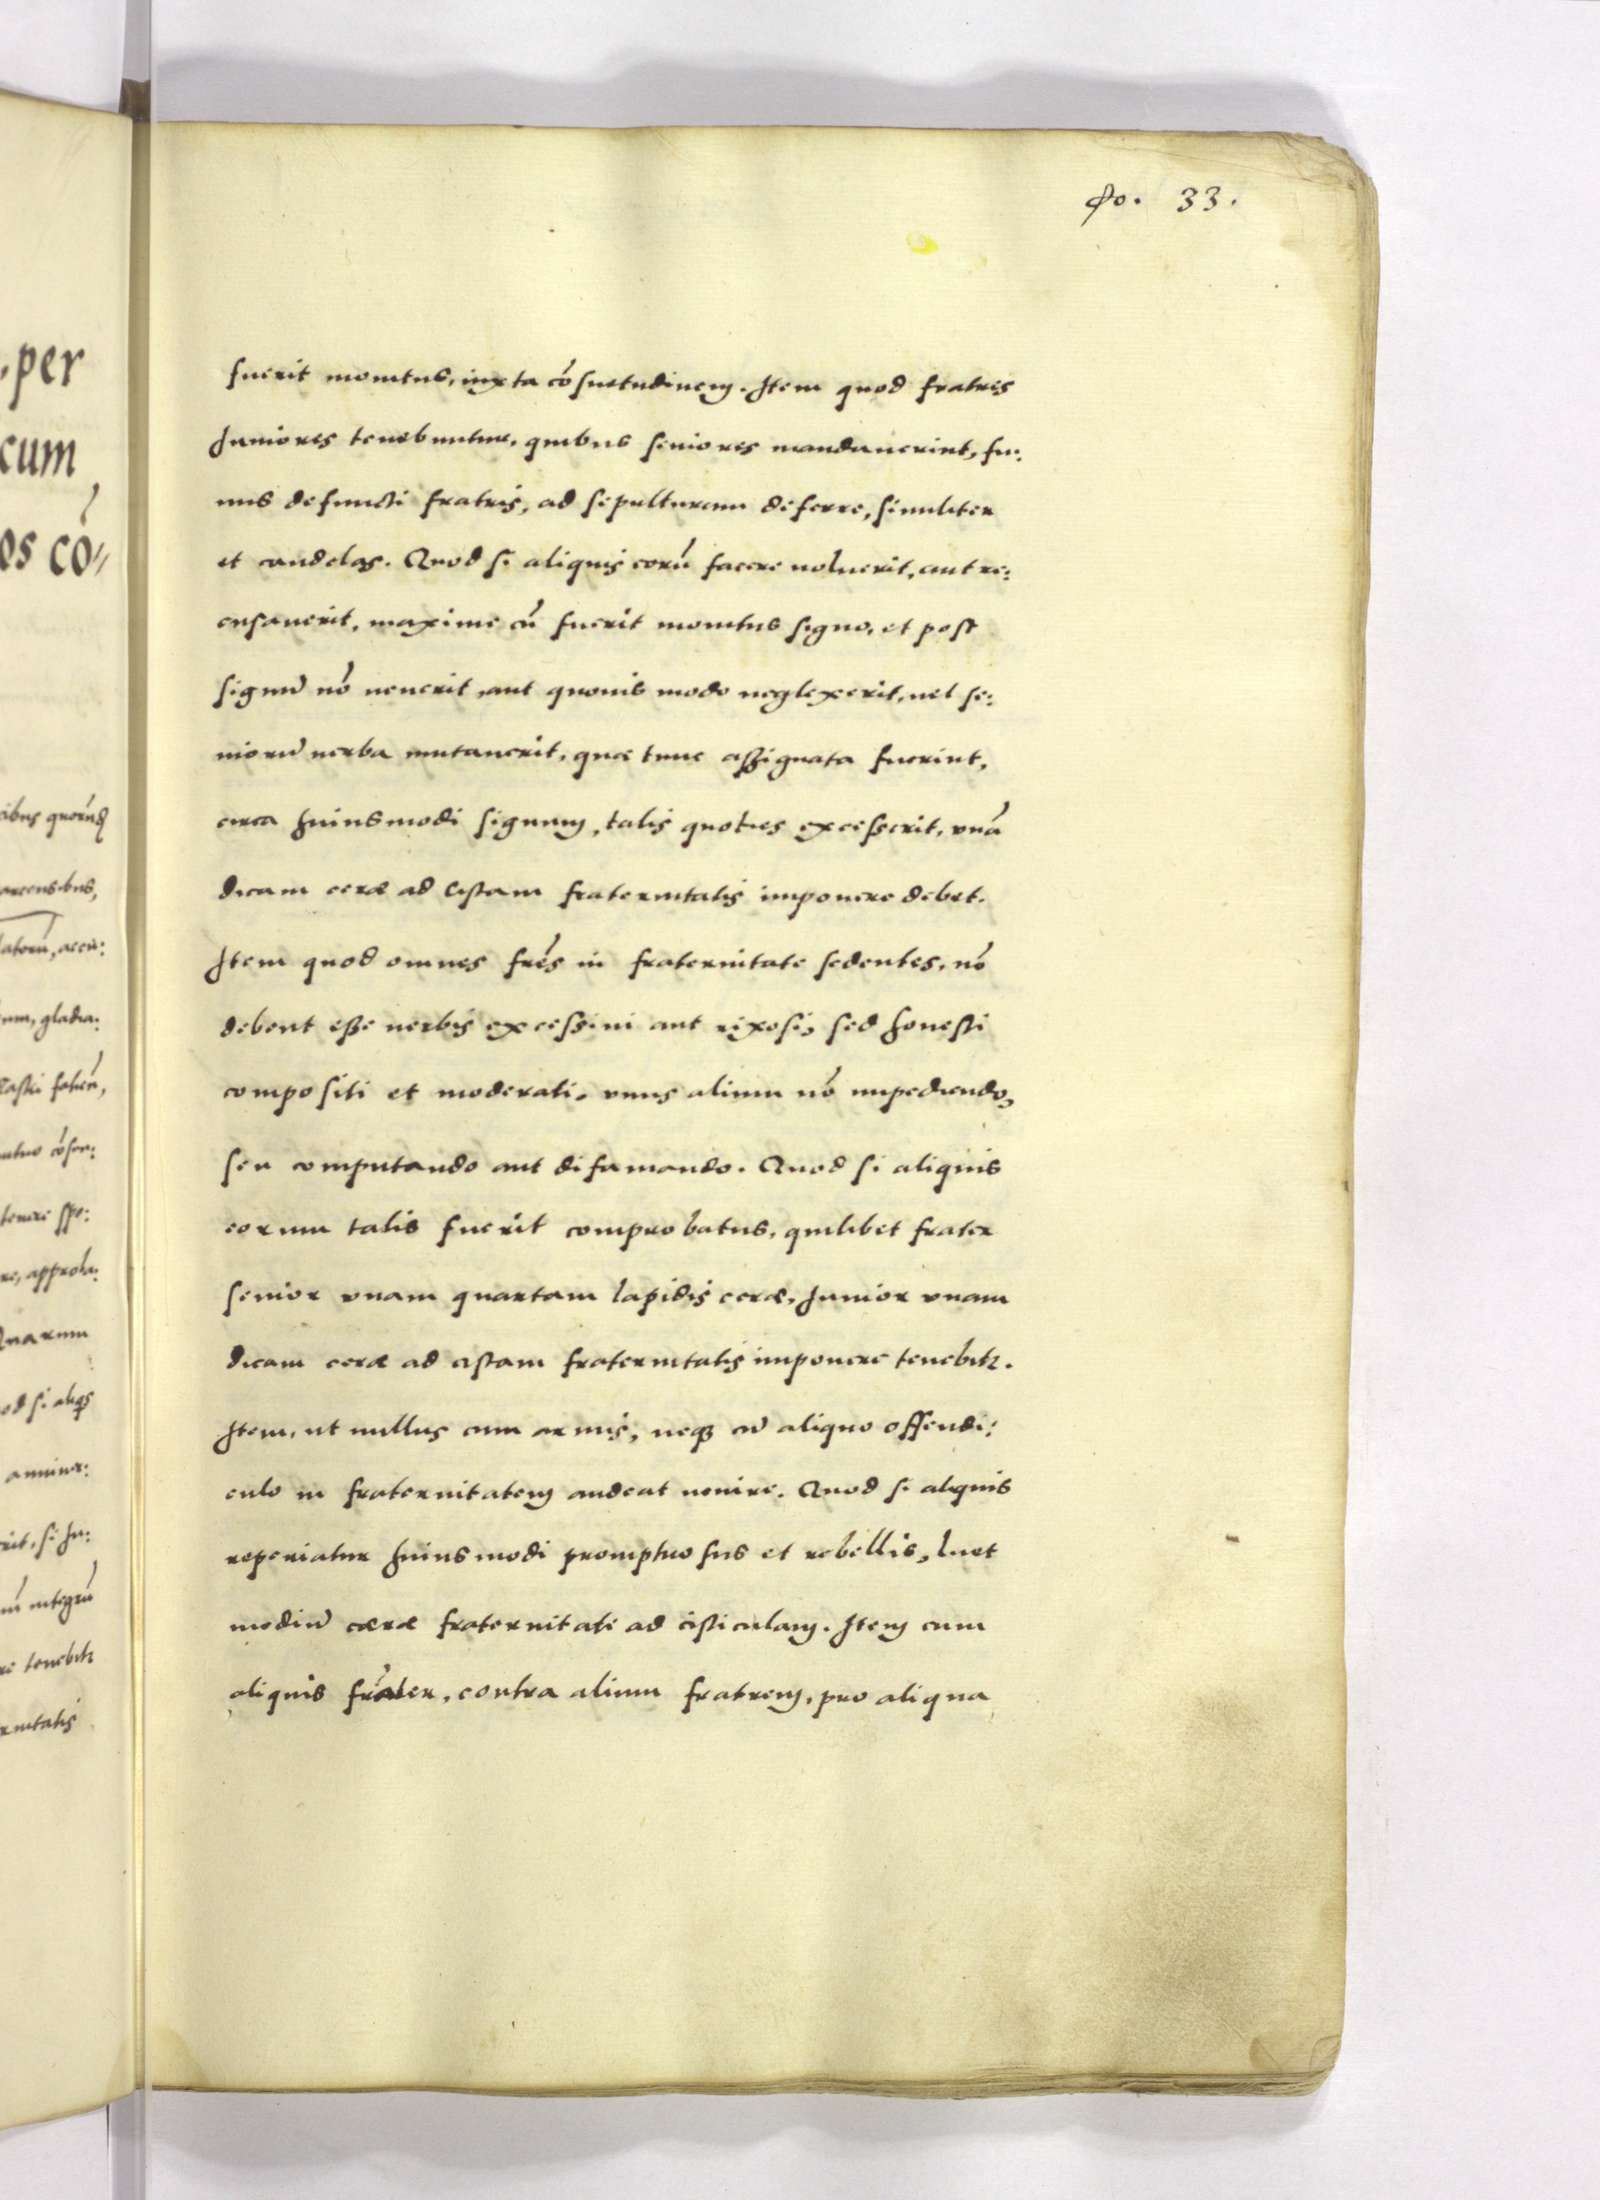 fo. 33.
fuerit monitus, iuxta cõsuetudinem. Item quod fratres
Juniores tenebuntur, quibus seniores mandauerint, fu:
nus defuncti fratris, ad sepulturam deferre, similiter
et candelas. Quod si aliquis eorũ facere noluerit, aut re:
cusauerit, maxime cũ fuerit monitus signo, et post
signũ nõ uenerit, aut quouis modo neglexerit, uel se:
niorũ uerba mutauerit, quæ tunc assignata fuerint,
circa huiusmodi signum, talis quoties excesserit, vnã
dicam ceræ ad Cistam fraternitatis imponere debet.
Item quod omnes frẽs in fraternitate sedentes, nõ
debent esse uerbis excessiui aut rixosi, sed honesti
compositi et moderati, vnus alium nõ impediendo,
seu computando aut difamando. Quod si aliquis
eorum talis fuerit comprobatus, quilibet frater
senior vnam quartam lapidis ceræ, Junior vnam
dicam ceræ ad cistam fraternitatis imponere tenebitꝛ.
Item, ut nullus cum armis, neqꝫ cũ aliquo offendi:
culo in fraternitatem audeat uenire. Quod si aliquis
reperiatur huiusmodi promptuosus et rebellis, luet
modiũ cæræ fraternitati ad cisticulam. Item cum
aliquis frater, contra alium fratrem, pro aliqua
per
cum
os cõ
cibus quorũd
arcensibus,
latorũ, accu:
um, gladia:
cõsen:
tenere spe:
re, approba:
Quarum
od si aliqs
rit, si Ju:
ũ integrũ
re tenebitꝛ
rnitatis